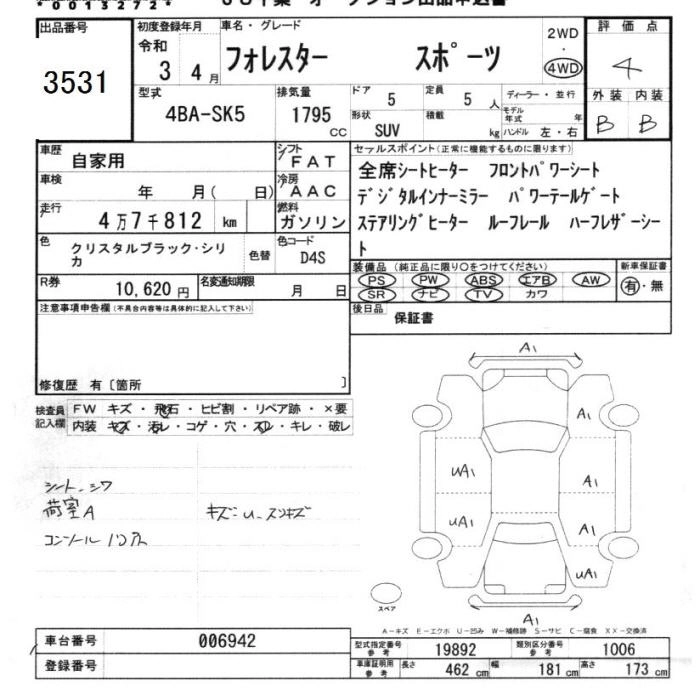 *00132724*
出品番号
3531
初度登録年月
令和
3 4月
車名・グレード
フォレスター スポーツ
2WD
・
4WD
評価点
4
型式
4BA-SK5
排気量
1795
CC
ドア
5
定員
5 人
ディーラー・並行
モデル年式 年
形状
SUV
積載
kg
ハンドル 左・右
外装 内装
B B
車歴
自家用
シフト
FAT
車検
年 月( 日)
冷房
AAC
走行
4万7千812 km
燃料
ガソリン
色
クリスタルブラック・シリカ
色替
色コード
D4S
R券
10,620円
名変通知期限
月 日
セールスポイント(正常に機能するものに限ります)
全席シートヒーター フロントパワーシート
デジタルインナーミラー パワーテールゲート
ステアリングヒーター ルーフレール ハーフレザーシート
装備品(純正品に限り○をつけてください)
PS PW ABS エアB AW
SR ナビ TV カワ
新車保証書
有・無
後日品
保証書
注意事項申告欄(不具合内容等は具体的に記入して下さい)
修復歴 有〔箇所 〕
検査員
記入欄
FW キズ・飛石・ヒビ割・リペア跡・×要
内装 キズ・汚レ・コゲ・穴・スレ・キレ・破レ
シート、シワ
荷室A
キズ:U、スリキズ
A1
A1
UA1
A1
UA1
A1
UA1
A1
スペア
A-キズ E-エクボ U-凹み W-補修跡 S-サビ C-腐食 XX-交換済
車台番号
006942
登録番号
型式指定番号
参考
19892
類別区分番号
参考
1006
車庫証明用
参考
長さ 462 cm
幅 181 cm
高さ 173 cm